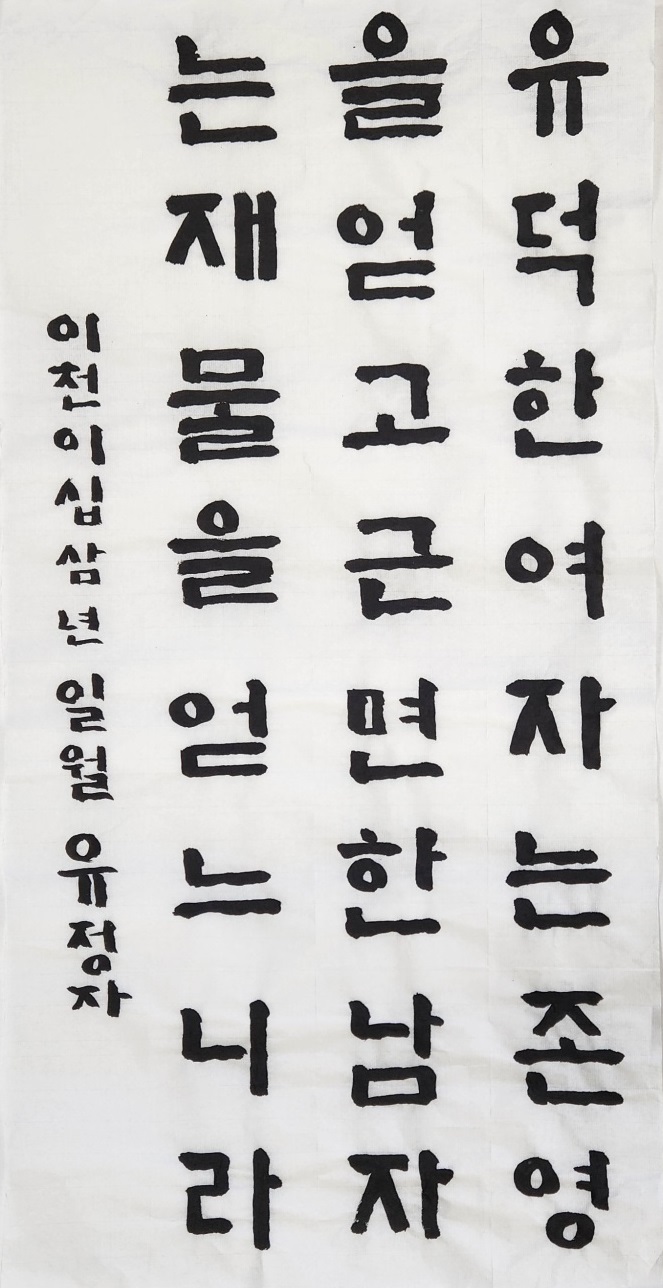 유덕한여자는존영
을얻고근면한남자
는재물을얻느니라
이천이십삼년 일월 유정자